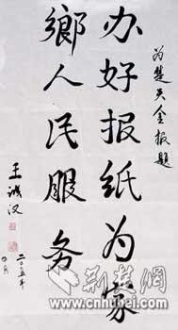 为楚天金报题
办好报纸为家
鄉人民服务
王诚汉
二〇〇五年
四月
荆楚网
www.cnhubei.com